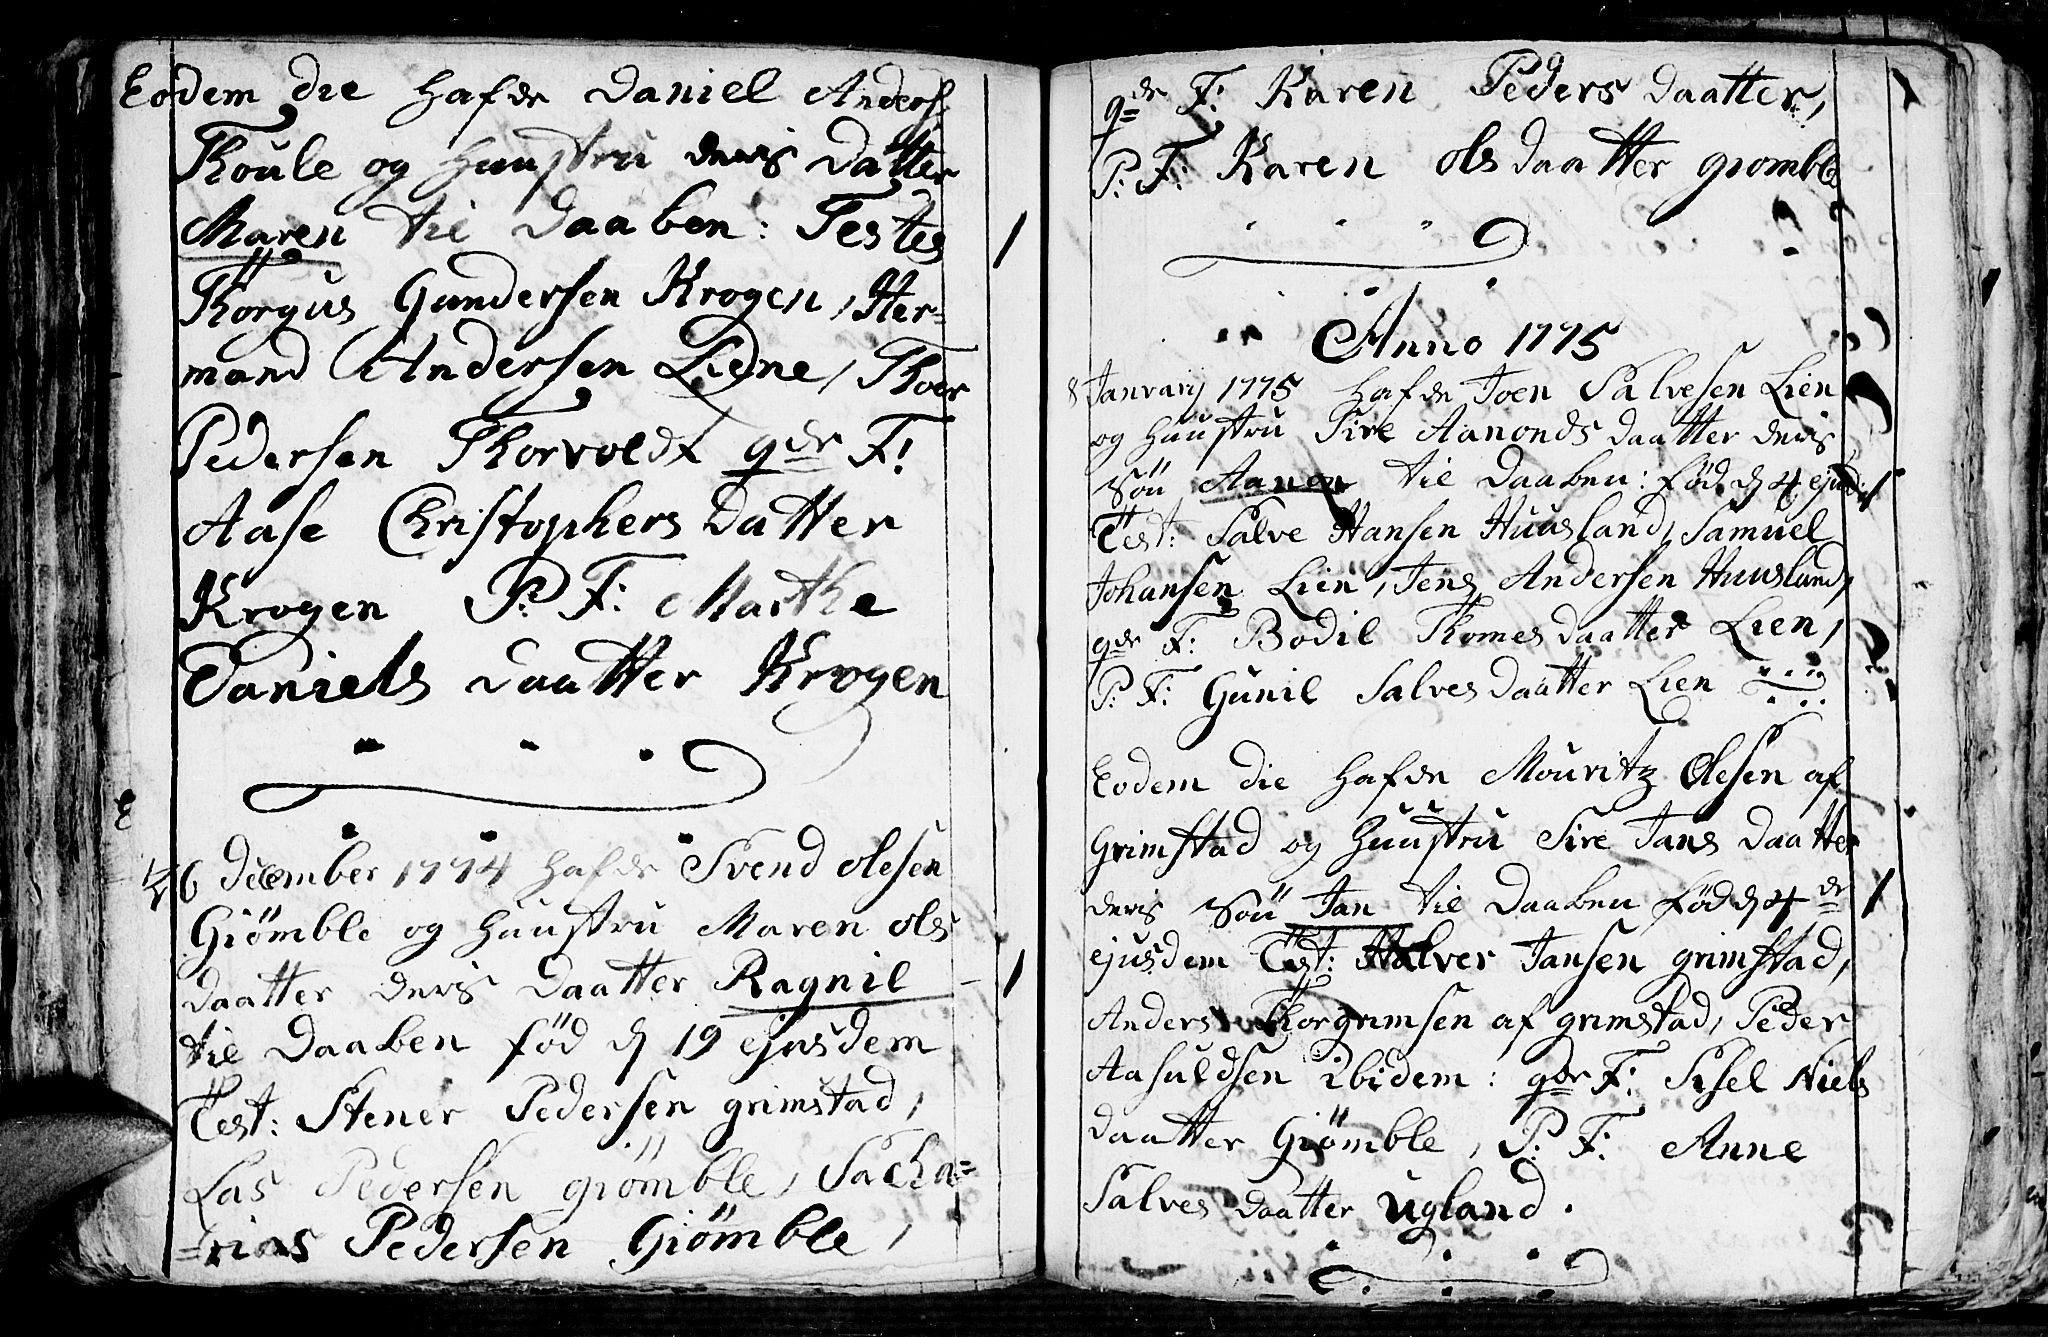 Eodem die hafde Daniel Anders
Thoule og Huustru deris Datter
Maren til Daaben: Testes
Thorgus Gundersen Krogen, Her=
mand Andersen Liene, Thoer
Pedersen Thorvoldt qde F:
Aase Christophers Datter
Krogen P: F: Marthe
Daniels Daatter Krogen
26 December 1774 hafde Svend Olesen
Giömble og Huustru Maren Ols
daatter deris Daatter Ragnil
til Daaben fød d 19 ejusdem
Test: Stener Pedersen grimstad,
Las Pedersen giömble, Sacha=
=rias Pedersen Giömble,
qde F: Karen Peders Daatter,
P: F: Karen Ols daatter giomble
Anno 1775
8 Januarij 1775 hafde Joen Salvesen Lien
og Huustru Sire Aanonds daatter deris
Søn Aanen til Daaben: fød d 4 ejusd:
Test: Salve Hansen Huusland, Samuel
Johansen Lien, Jens Andersen Huusland,
qde F: Bodil Thomes daatter Lien,
P: F: Gunil Salves Daatter Lien
Eodem die hafde Mouritz Olesen af
Grimstad og Huustru Sire Jans Daatter
deris Søn Jan til Daaben fød d 4de
ejusdem Test: Halver Jansen grimstad,
Anders Thorgrimsen af grimstad, Peder
Aasuldsen ibidem: qde F: Sisel Niels
daatter Giömble, P: F: Anne
Salves daatter Ugland.